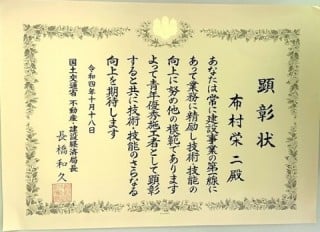 顕彰状
布村栄二殿
あなたは常に建設事業の第一線に
あって業務に精励し技術・技能の
向上に努め他の模範であります
よって青年優秀施工者として顕彰
すると共に技術・技能のさらなる
向上を期待します
令和四年十月十八日
国土交通省 不動産・建設経済局長
長橋和久